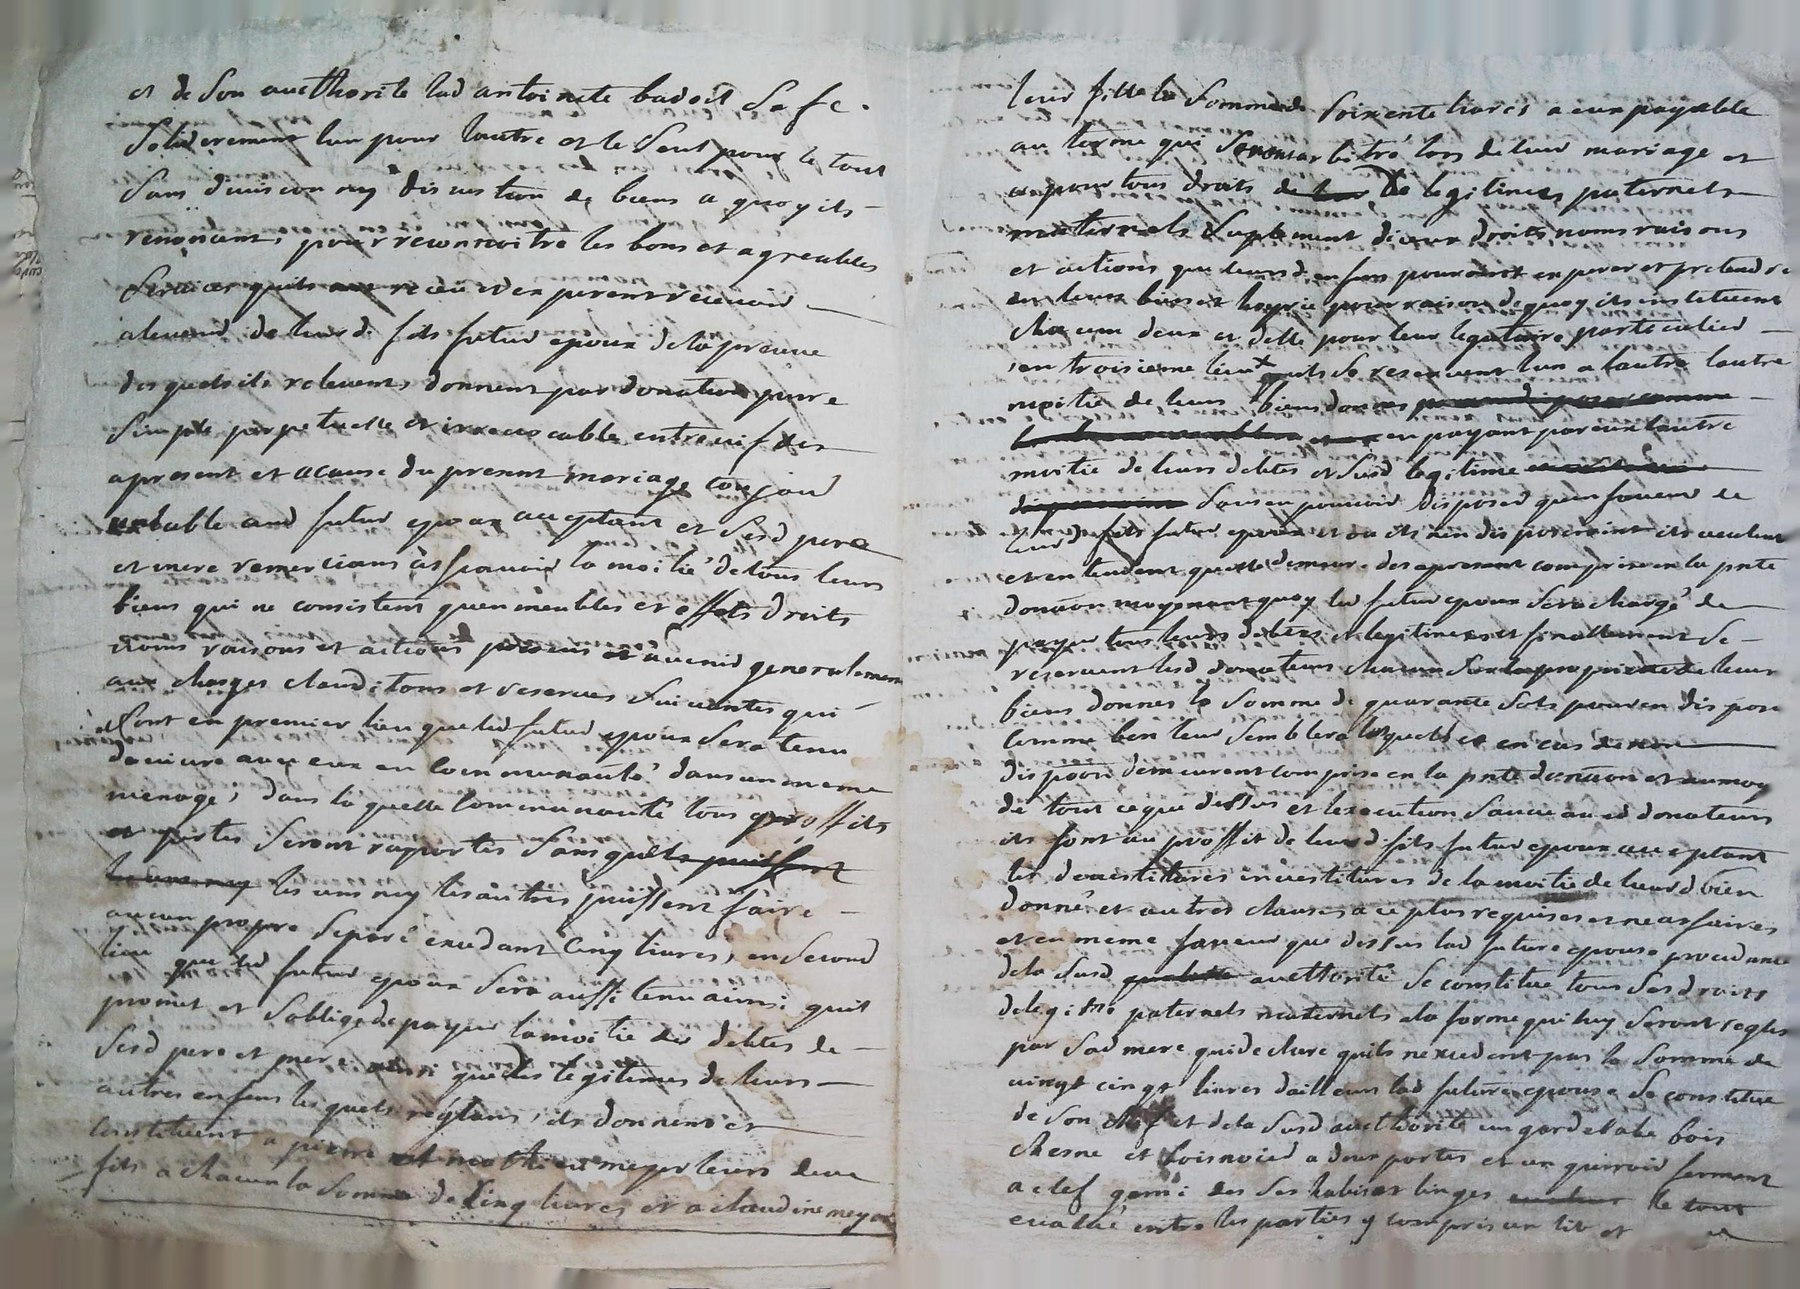 et de son aucthorité lad antoinette badoil sa fe.
Soliderement lun pour lautre et le seul pour le tout
sans division ny discustion de biens a quoy ils
renoncent, pour reconnoitre les bons et agreables
services quils ont receu et esperent recevoir
alavenir de leurd. fils futur epoux de la preuve
desquels ils relevent, donnent par donation pure
simple perpetuelle et irrevocable entre vif des
apresent et acause du present mariage toujour
valable aud futur epoux acceptant et sesd pere
et mere remerciant àsscavoir la moitié de tous leurs
biens qui ne consistent quen meubles et effets droits
noms raisons et actions presens et avenir generalement
aux charges conditions et reserves suivantes qui
sont en premier lieu que led futur epoux sera tenu
de vivre avec eux en communauté dans un meme
menage, dans laquelle communauté tous proffits
et pertes seront raportes sans quils puissent
les uns ny les uns ny les autres puissent faire
aucun propre separé excedant cinq livres, en second
lieu que led futur epoux sera aussi tenu ainsi quil
promet et soblige de payer la moitié des debtes de
sesd pere et mere ainsi que les legitimes de leurs
autres enfens lesquels reglant, ils donnent et
constituent a pierre et mathieu meyer leurs deux
fils a chacun la somme de cinq livres et a claudine meyer
leur fille la somme de soixente livres a eux payable
au terme qui sera arbitré lors de leur mariage et
ce pour tous droits de leur de legitimes paternels
maternels suplement diceux droits noms raisons
et actions que leursd. enfens pourroint esperer et pretendre
en leurs biens et hoyrie pour raison de quoy ils instituent
chacun deux et delle pour leur legataire particulier
en troisieme lieu quils se reservent lun a lautre lautre
moitié de leurs biens donnes
en payant par eux lautre
moitié de leurs debtes et susd legitime
sans en pouvoir disposer quen faveur de
leurd fils futur epoux et ou ils nen disposeroint ils veulent
et entendent quelle demeure des apresent comprise en la pnte
donaon moyenant quoy led futur epoux sera chargé de
payer tous leurs debtes et legitimes et finallement se
reservent lesd donateurs chacun sur la proprieté de leurs
biens donnes la somme de quarante sols pour en dispose
comme bon leur semblera lesquels et en cas de non
dispoon demeurent comprise en la pnte donaon et au moy
de tout ce que dessus et lexecution sauve aux d donateurs
ils font au proffit de leurd fils futur epoux acceptant
les devestitures investitures de la moitié de leurd bien
donné et autres clauses a ce plus requises et necessaires
et en meme faveur que dessus lad future epouse procedante
de la susd qualité aucthorité se constitue tous ses droits
de legitime paternels maternels a la forme qui luy seront regles
par sad mere qui declare quils nexcedent pas la somme de
vingt cinqt livres dailleurs lad future epouse se constitue
de son chef et de la susd aucthorité un garderobe bois
chesne et bois noier a deux portes et un tirroir fermant
a clef garni des ses habis et linges le tout
evalué entre les parties y compris un lit et